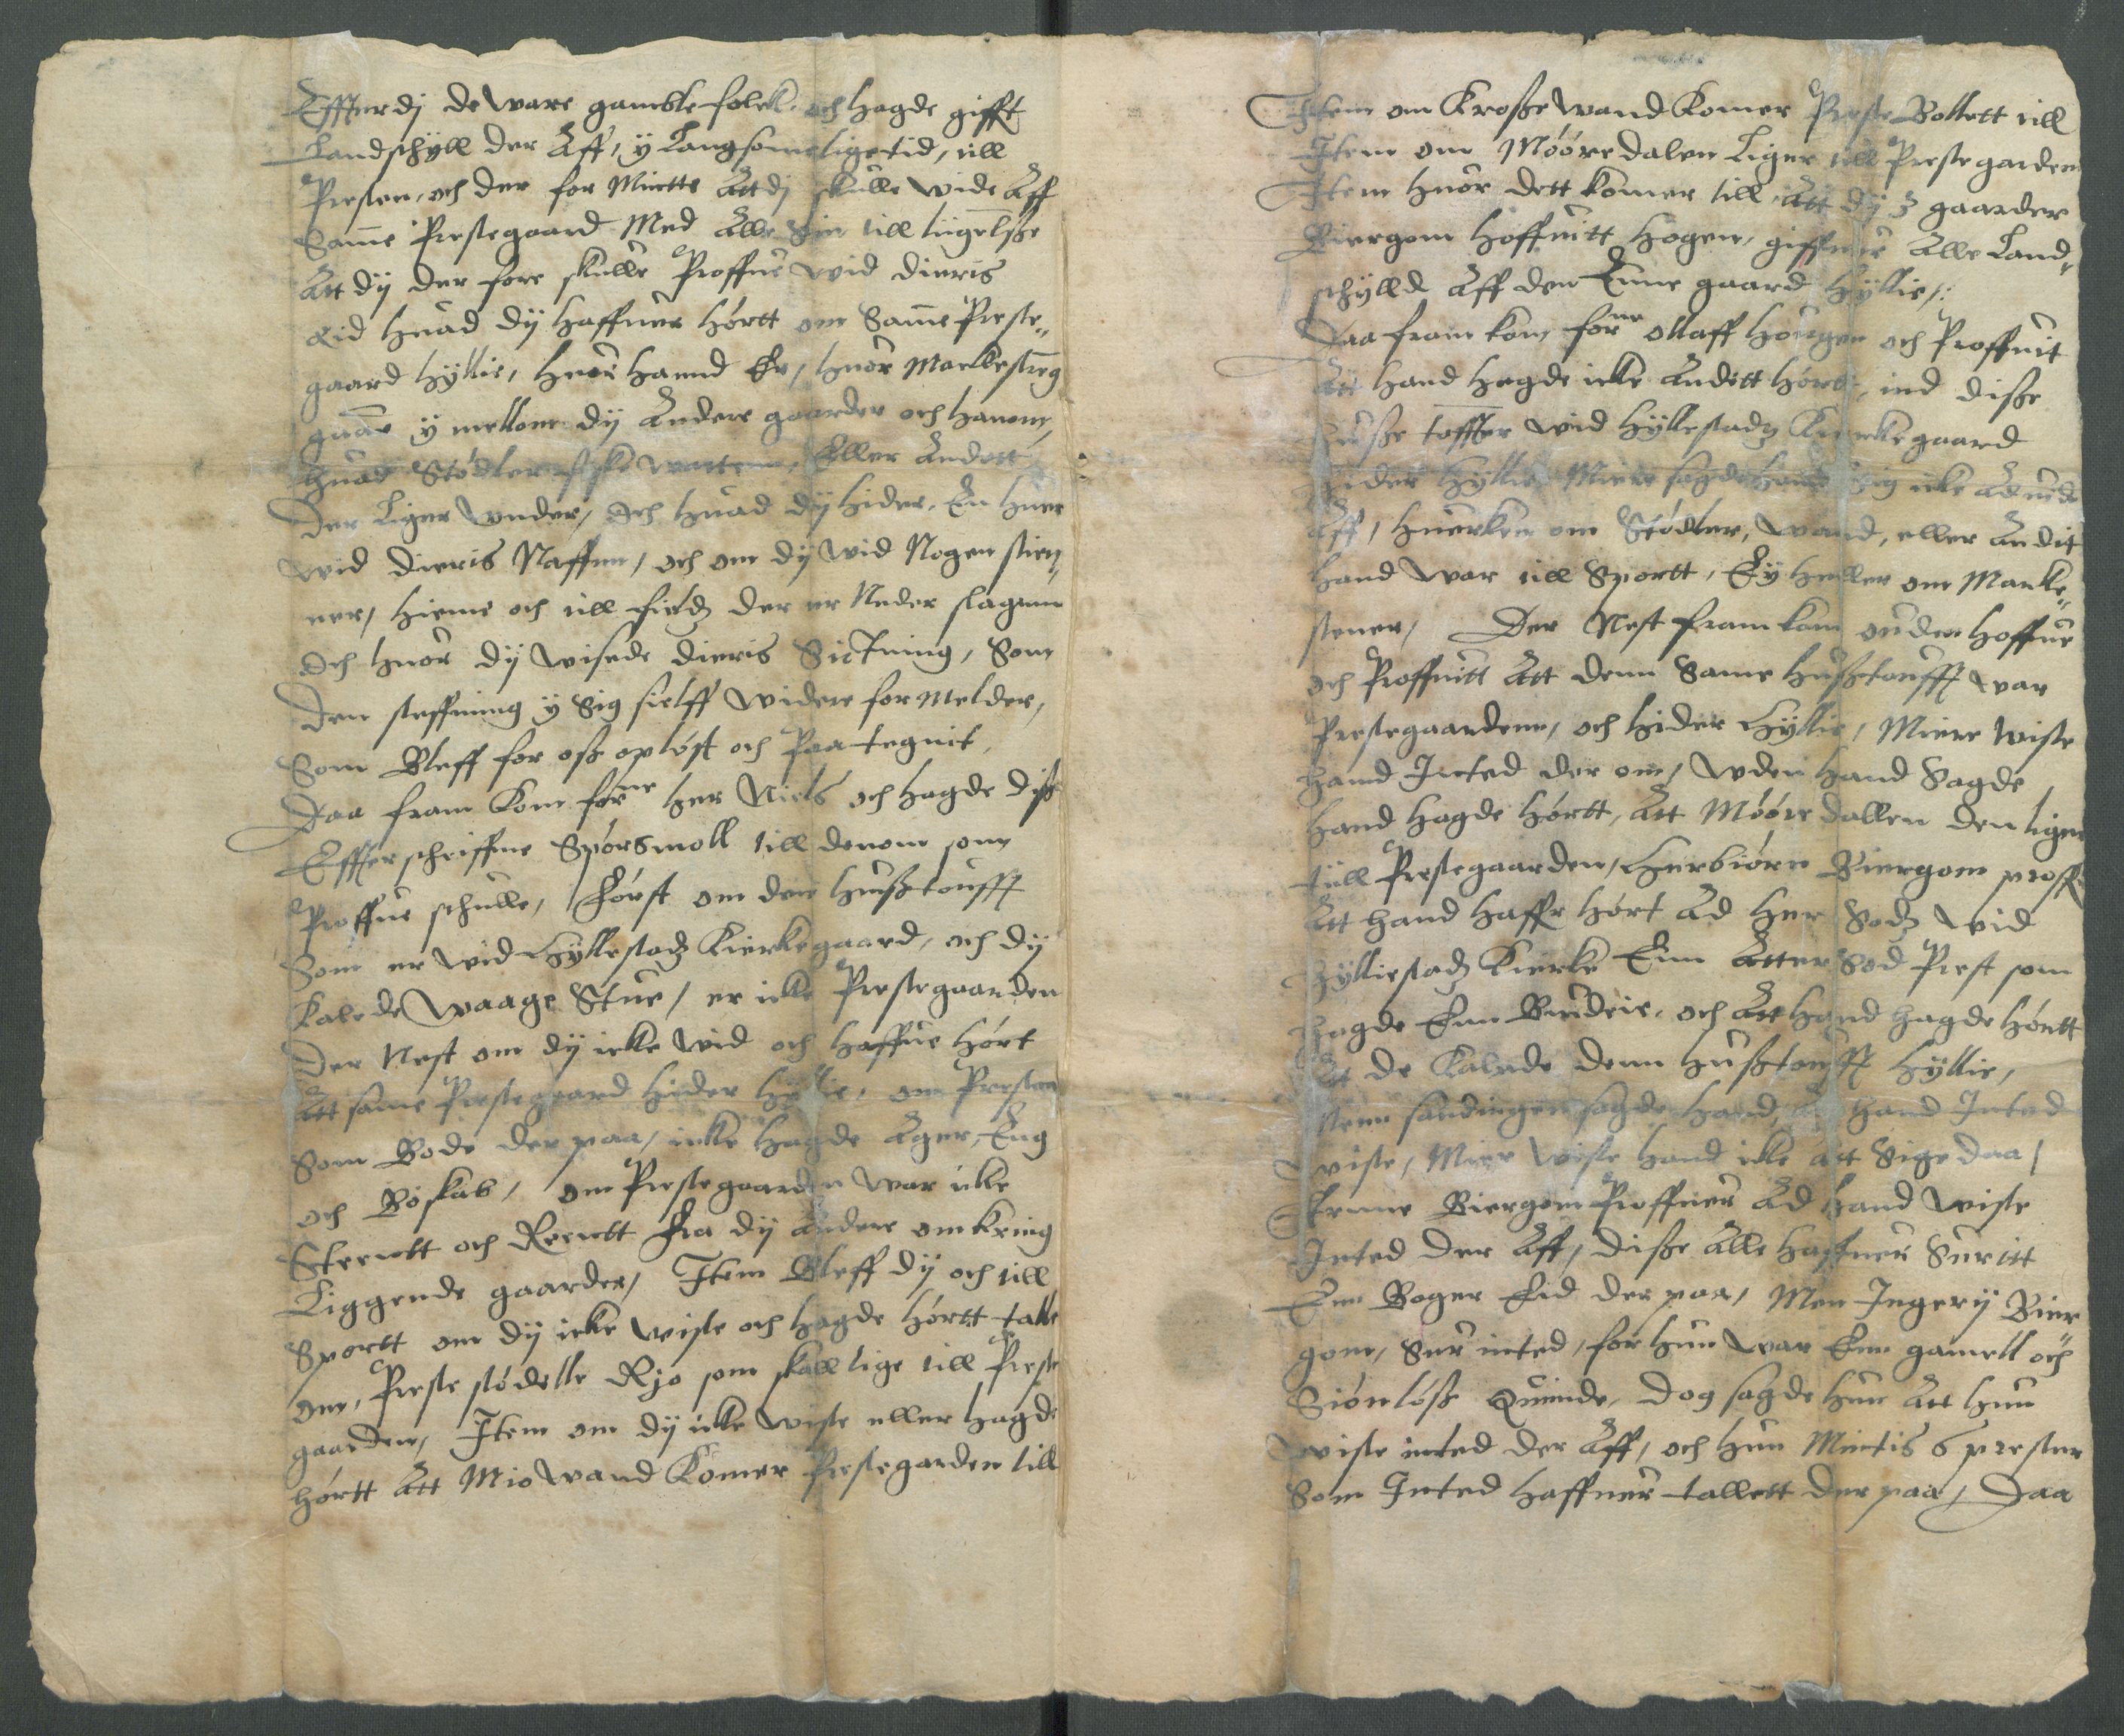 Effterdj de ware gamble folck och hagde gifft
Landschyll der Aff, y Langsomelige tid, till
Presten, och der for Miette Att dj skulle wide Aff
Same Prestegaard Med Alle Sin till
Att dij der fore skulle Proffue wid dieris
Eid huad dij haffuer hørtt om Same Preste„
gaard Hyllie, huor hannd Er, huor Marckesteng
gaae y mellom dij Andere gaarder och hanom,
huad Stødler fiske wattenn, Eller Andett
Der Liger wnder, Och huad dij hider, En huer
wid dieris Naffnn, och om dij wid Nogen stien„
ner, hieme och till fieldz der er Neder slagenn
Och huor dij wisede dieris Sictning, Som
Den steffning y Sig sielff widere for Melder,
Som Bleff for osz opløst och Paategnit,
Daa fram Kom forne her Niels och hagde disz
Effterschriffne Spørsmoll till denom som
Proffue schulle, Først om den huusztoufft
Som er wid Hyllestadz Kierkegaard, och dij
Kalede Waage Stue, er icke Prestegaarden
Der Nest om dij icke wid och haffue hørt
Att same Prestegaard hider Hyllie, om Presten
Som Bode der paa, icke hagde Ager, Eng
och Bøskab, om Prestegaarden war icke
Streutt och Reentt fra dij Andere omkring
Liggende gaarder, Item Bleff dij och till
Sportt om dij icke wiste och hagde hørtt talle
om, Preste stødelle Rjo som skall lige till Preste
gaarden, Item om dij icke wiste eller hagde
hørtt Att Mio Wand Komer Prestegarden till
Item om Krosze Wand Komer Preste Bollett till
Item om Mööredalen Liger till Prestegarden
Item huor dett komer till Att dij 3 gaarder
Biergom Hoffuitt Hogen, giffuer Alle Land„
schylld Aff den Enne gaard Hyllie/:
Daa fram kom forne Ollaff Hougen och Proffuit
Att hand hagde icke Andett hørtt, ind disze
husze toffter wid Hyllestadz Kierckegaard
hider Hyllie Miere sagde hand sig icke
Aff, huercken om Stødler, wand, eller Andit
hand war till Sportt, Ey heller om Marke„
stener, Der Nest fram kom Ouden Hoffue
och Proffuitt Att denn Same husztoufft war
Prestegaardenn, och hider Hyllie, Miere wiste
hannd Inted der om, wden hand Sagde
hand hagde hørtt, Att Mööredallen den liger
till Prestegaarden, Herbiörn Biergom proff
Att hand haffr hørt Ad her Sodz wid
Hylliestadz Kierke Enn Atter Sod Prest som
hagde Enn Budeie, och Att hand hagde hørtt
Att de Kalede denn husztoufft Hyllie,
Menn sandingen sagde hand, Att hand Inted
wiste, Mier wiste hand icke att Sige daa,
Stenne Biergom Proffuer Ad hand wiste
Inted der Aff, disze Alle haffuer Suritt
Enn Boger Eid der paa, Men Ingerij Bier
gom, Sur inted, for hun war Enn gamell och
Siönløsz Quinde, Dog sagde hun Att hun
wiste inted der Aff, och hun Mintis 6 prester
Som Inted haffuer tallett der paa, Daa